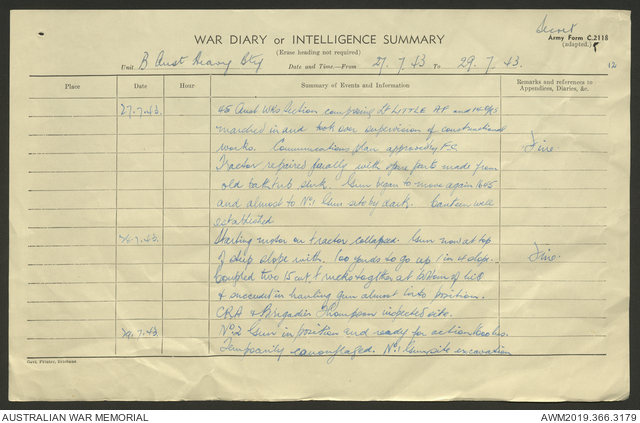 Secret
WAR DIARY or INTELLIGENCE SUMMARY
Army Form C.2118
(Erase heading not required)
(adapted.)
Unit B Aust Heavy Bty Date and Time—From 27.7.43 To 29.7.43.
12
Place Date Hour Summary of Events and Information Remarks and references to Appendices, Diaries, &c.
27.7.43. 45 Aust Wks Section comprising Lt LITTLE A.P. and 14 O/Rs
marched in and took over supervision of constructional
works. Communications plan approved by F.C. Fine.
Tractor repaired locally with spare part made from
old bath tub. Gun began to move again 1645
and almost to No 1 Gun site by dark. Canteen well
established
28.7.43. Starting motor on tractor collapsed. Gun now at top
of steep slope with 100 yards to go up 1 in 4 slope. Fine.
Coupled two 15 cwt trucks together at bottom of hill
& succeeded in hauling gun almost into position.
CRA & Brigadier Thompson inspected site.
29.7.43. No 2 Gun in position and ready for action
Temporarily camouflaged. No 1 Gun site excavation
Govt. Printer, Brisbane
AUSTRALIAN WAR MEMORIAL
AWM2019.366.3179